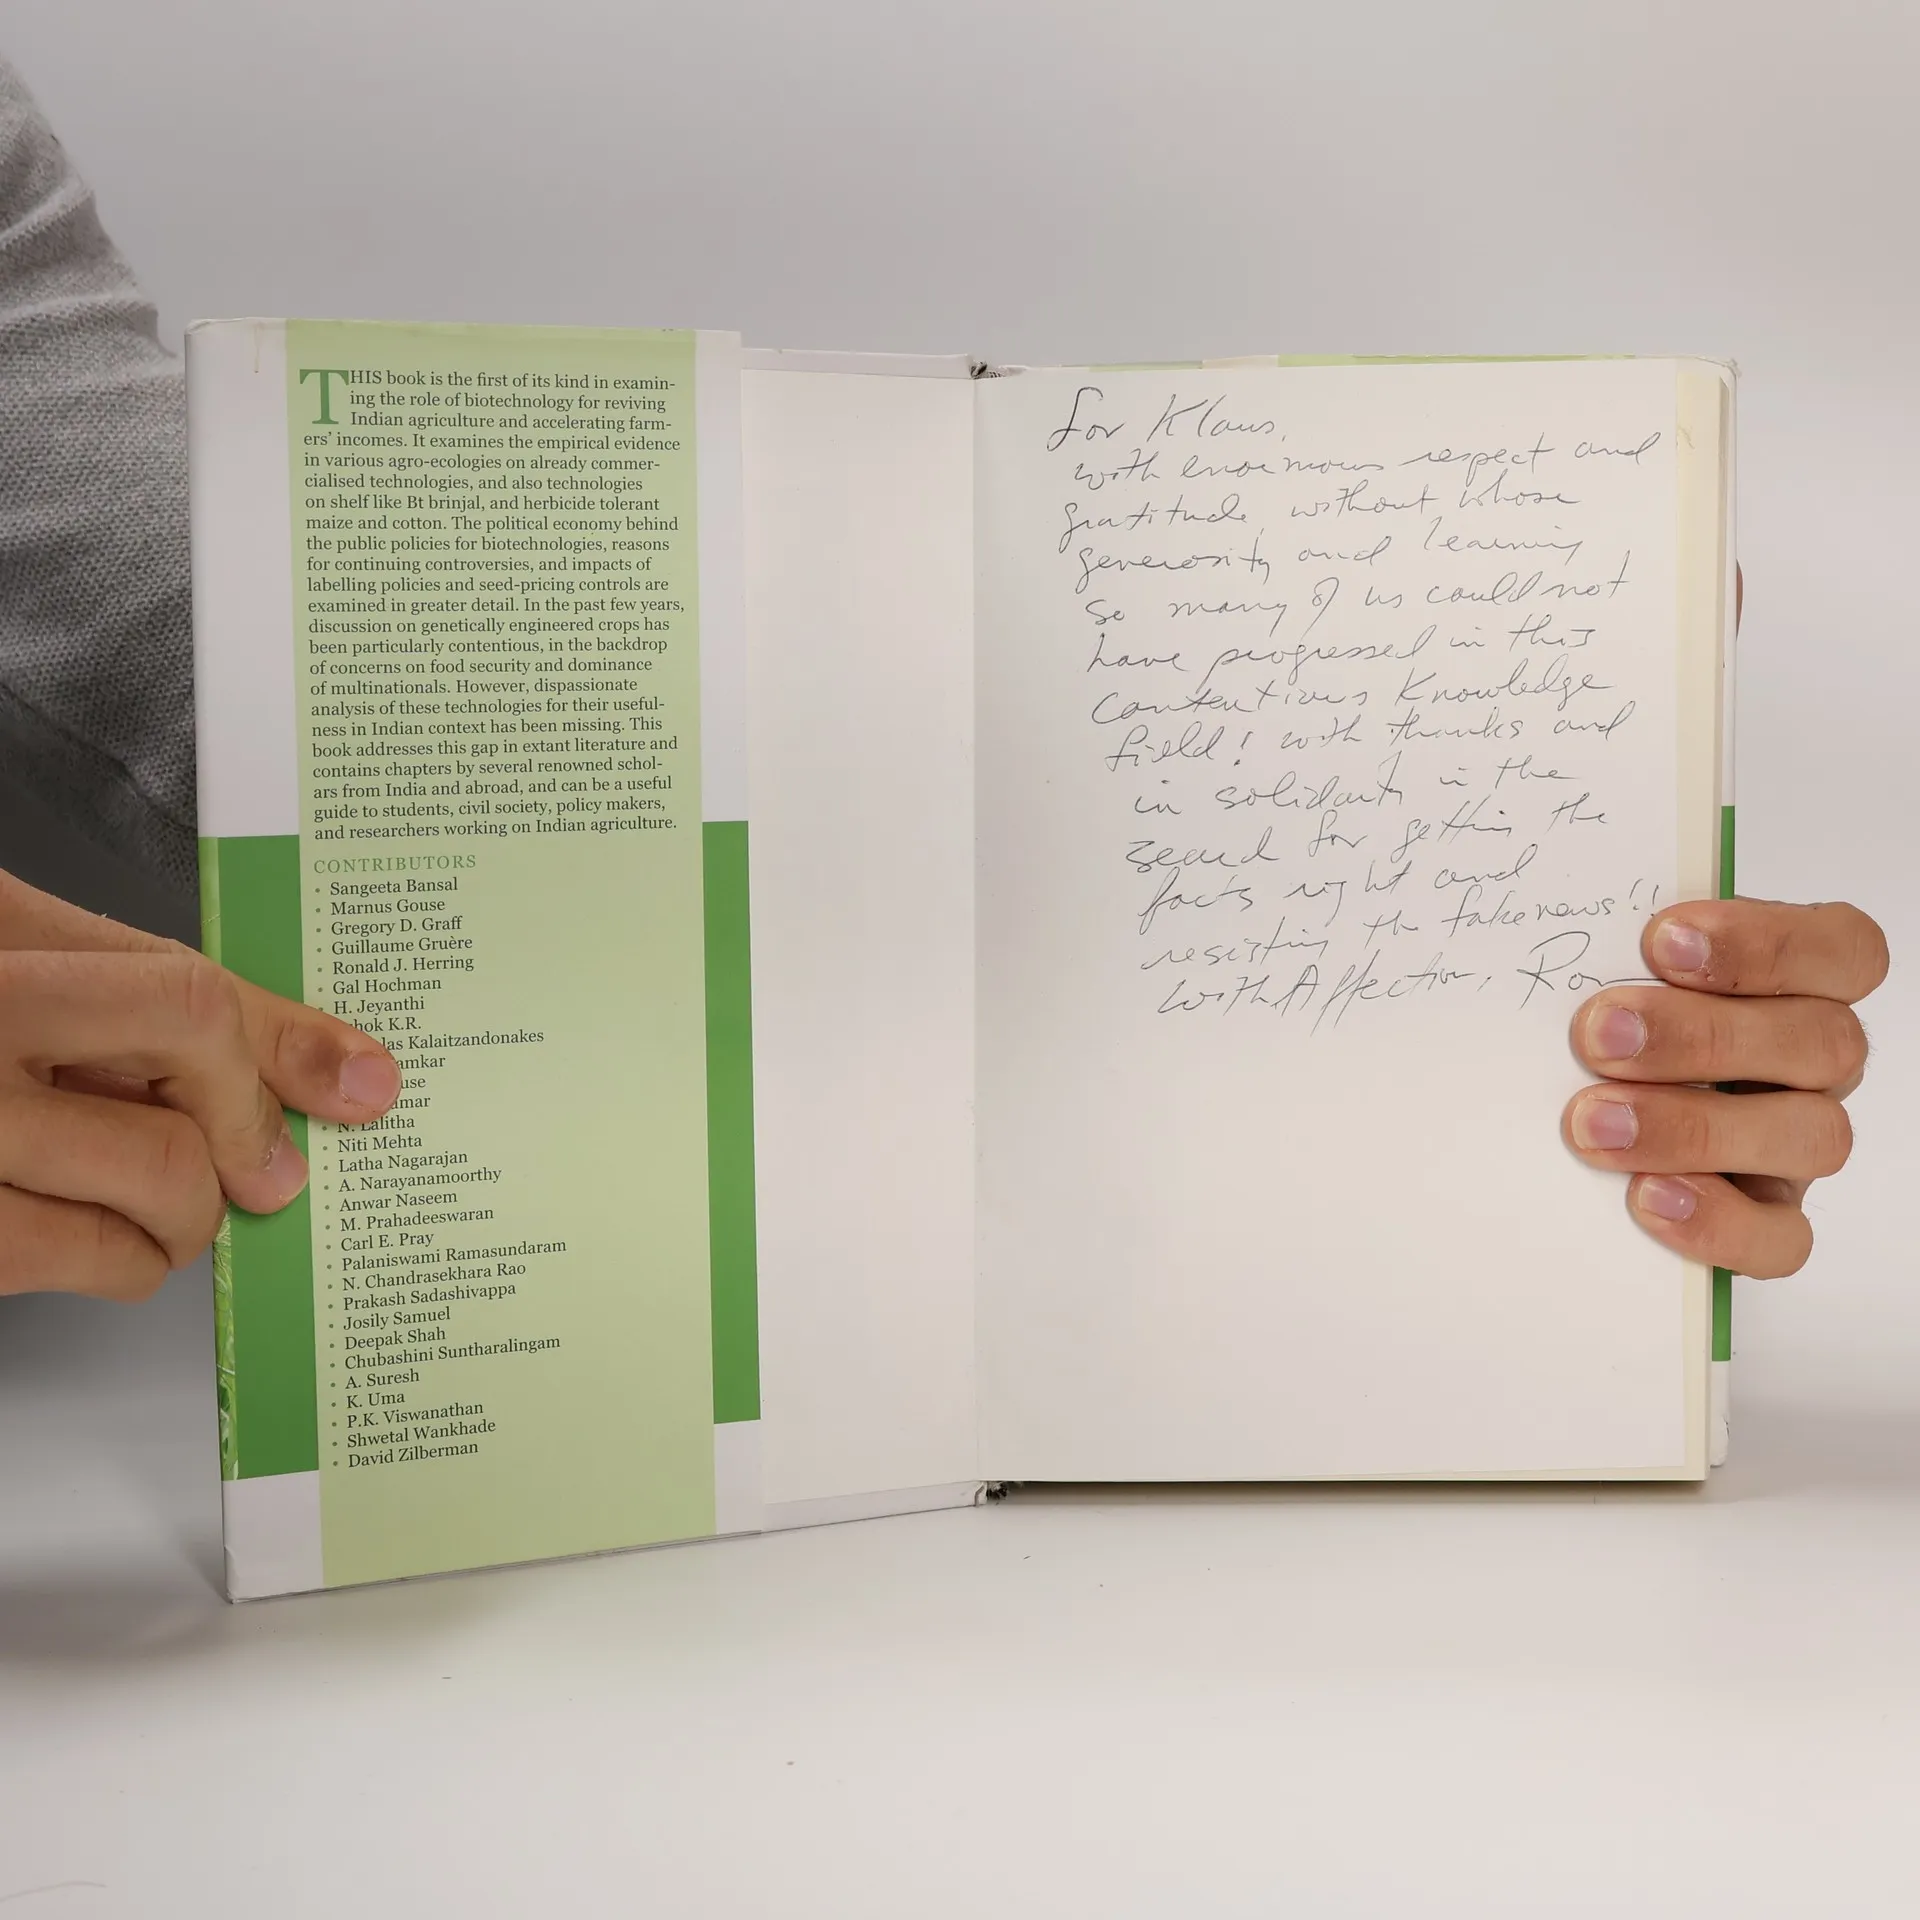 THIS book is the first of its kind in examin-
ing the role of biotechnology for reviving
Indian agriculture and accelerating farm-
ers' incomes. It examines the empirical evidence
in various agro-ecologies on already commer-
cialised technologies, and also technologies
on shelf like Bt brinjal, and herbicide tolerant
maize and cotton. The political economy behind
the public policies for biotechnologies, reasons
for continuing controversies, and impacts of
labelling policies and seed-pricing controls are
examined in greater detail. In the past few years,
discussion on genetically engineered crops has
been particularly contentious, in the backdrop
of concerns on food security and dominance
of multinationals. However, dispassionate
analysis of these technologies for their useful-
ness in Indian context has been missing. This
book addresses this gap in extant literature and
contains chapters by several renowned schol-
ars from India and abroad, and can be a useful
guide to students, civil society, policy makers,
and researchers working on Indian agriculture.
CONTRIBUTORS
• Sangeeta Bansal
• Marnus Gouse
• Gregory D. Graff
• Guillaume Gruère
• Ronald J. Herring
• Gal Hochman
• H. Jeyanthi
K.R.
Kalaitzandonakes
• N. Lalitha
• Niti Mehta
• Latha Nagarajan
• A. Narayanamoorthy
• Anwar Naseem
• M. Prahadeeswaran
• Carl E. Pray
• Palaniswami Ramasundaram
• N. Chandrasekhara Rao
• Prakash Sadashivappa
• Josily Samuel
• Deepak Shah
• Chubashini Suntharalingam
• A. Suresh
• K. Uma
• P.K. Viswanathan
• Shwetal Wankhade
• David Zilberman
For Klaus,
with enormous respect and
gratitude, without whose
generosity and learning
so many of us could not
have progressed in this
contentious Knowledge
field! with thanks and
in solidarity in the
search for getting the
facts right and
resisting the fake news!!
With Affection, Ron